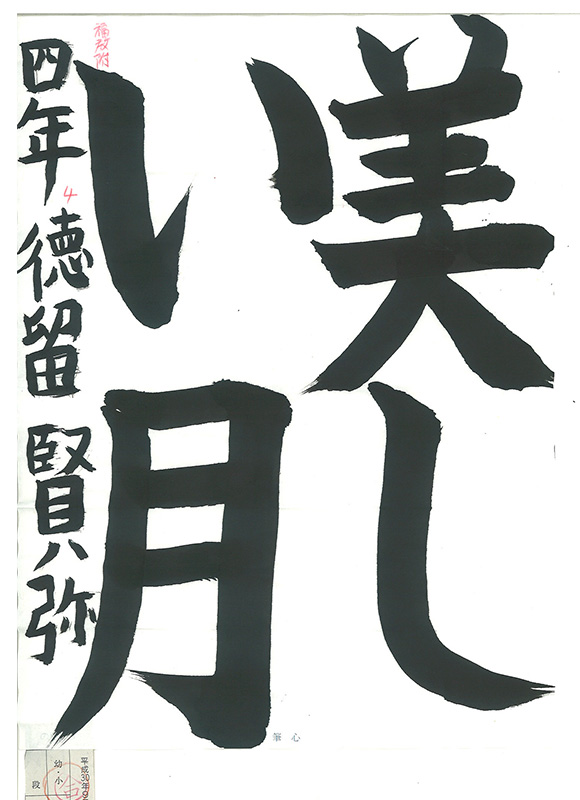 美し
い月
四年 徳留 賢弥
福教附
4
心筆
平成30年9
幼・小
段